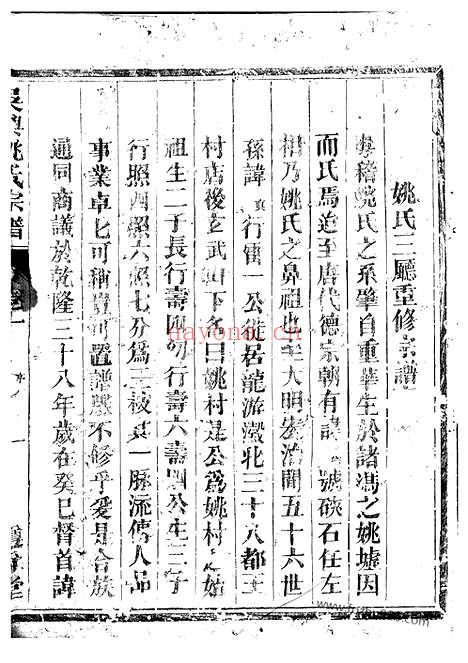 姚氏三廳重修宗譜
粤稽姚氏之系肇自重華生於諸馮之姚墟因
而氏焉追至唐代德宗朝有諱 號硤石任左
相乃姚氏之鼻祖也至大明宏治間五十六世
孫諱 行雷一公遊居龍游瀫北三十八都王
村店後 武 下名曰姚村是公爲姚村 始
祖生二子長行壽 幼行壽六壽四公生三子
行照四照六照七分爲三 一脉流傳人品
事業卓七可稱豈可置譜 不修乎爰是合族
通同商議於乾隆三十八年歲在癸巳督首諱
吳興姚氏宗譜
卷一
堂
hayona.cn